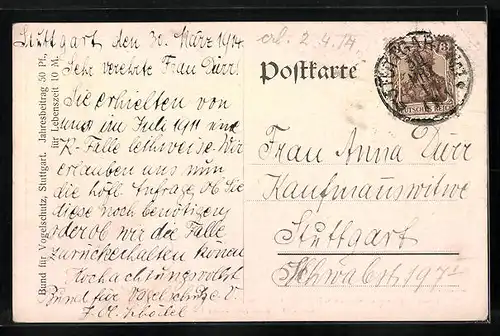 Stuttgart den 30. März 1914.
Sehr verehrte Frau Dürr!
Sie erhielten von
uns im Juli 1911 eine
K-Falle leihweise. Wir
erlauben uns nun
die höfl. Anfrage, ob Sie
diese noch benötigen
oder ob wir die Falle
zurückerhalten können
Hochachtungsvollst
Bund für Vogelschutz e. V.
Bund für Vogelschutz, Stuttgart. Jahresbeitrag 50 Pf.,
für Lebenszeit 10 M.
erl. 2.4.14.
Postkarte
STUTTGART
DEUTSCHES REICH
Frau Anna Dürr
Kaufmannswitwe
Stuttgart
Schwabst 197